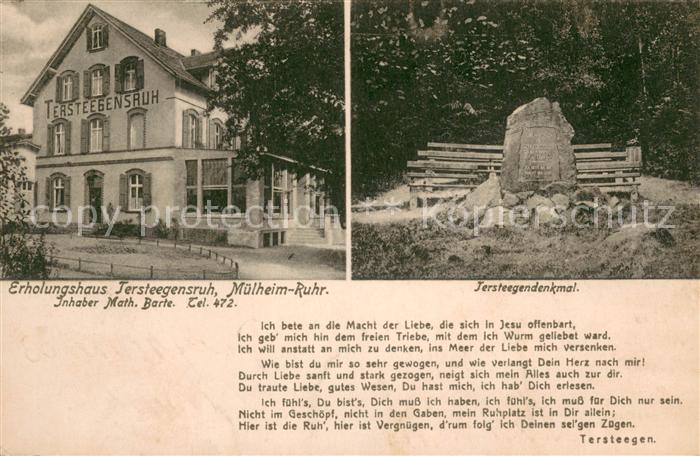 TERSTEEGENSRUH
Copyright Postkarten-Paradies.de
Copyright Postkarten-Paradies.de
Erholungshaus Tersteegensruh, Mülheim-Ruhr.
Inhaber Math. Barte. Tel. 472.
Tersteegendenkmal.
Ich bete an die Macht der Liebe, die sich in Jesu offenbart,
Ich geb' mich hin dem freien Triebe, mit dem ich Wurm geliebet ward.
Ich will anstatt an mich zu denken, ins Meer der Liebe mich versenken.
Wie bist du mir so sehr gewogen, und wie verlangt Dein Herz nach mir!
Durch Liebe sanft und stark gezogen, neigt sich mein Alles auch zur dir.
Du traute Liebe, gutes Wesen, Du hast mich, ich hab' Dich erlesen.
Ich fühl's, Du bist's, Dich muß ich haben, ich fühl's, ich muß für Dich nur sein.
Nicht im Geschöpf, nicht in den Gaben, mein Ruhplatz ist in Dir allein;
Hier ist die Ruh', hier ist Vergnügen, d'rum folg' ich Deinen sel'gen Zügen.
Tersteegen.